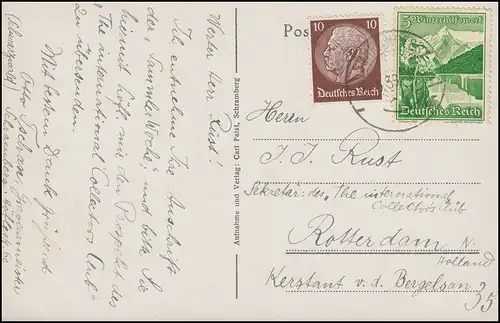 Werter Herr Rust!
Ich entnehme Ihre Anschrift
der „Sammler Woche“, und bitte Sie
hiermit höfl. mir den Prospekt des
„The international Collectors Club“
zu übersenden.
Mit bestem Danke grüßend
Otto
(Schwarzwald) Schramberg
Aufnahme und Verlag: Carl Faist, Schramberg
Pos
10 10
Deutsches Reich
5 Winterhilfswerk
Deutsches Reich
Herrn
J. J. Rust
Sekretär: des „The international
Collectors Club
Rotterdam N.
Holland
Kerstant v. d. Bergelsan
35